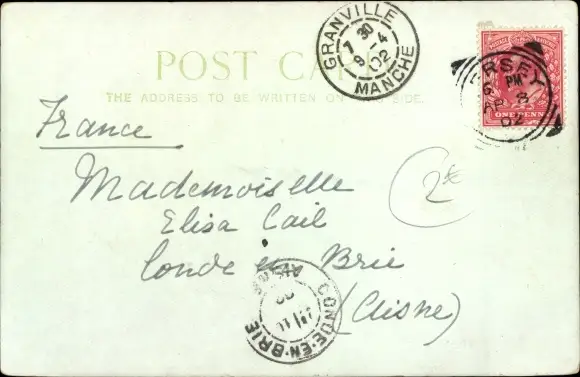 POST CARD
THE ADDRESS TO BE WRITTEN ON THIS SIDE.
GRANVILLE
7 30
9 -4
02
MANCHE
JERSEY
PM
AP 8
02
ONE PENNY
France
Mademoiselle
Elisa Cail
Condé en Brie
(Aisne)
CONDE-EN-BRIE
AISNE